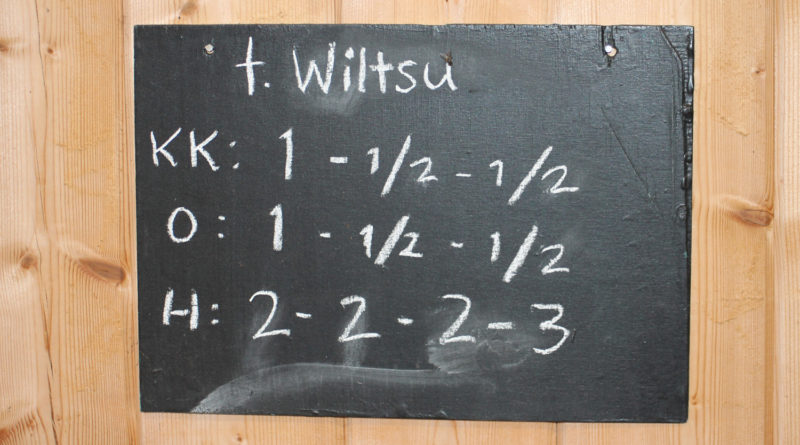 t. Wiltsu
KK: 1 - 1/2 - 1/2
O: 1 - 1/2 - 1/2
H: 2 - 2 - 2 - 3